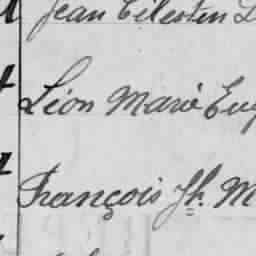 Jean Célestin L
Léon Marie Eug
François Jh. M